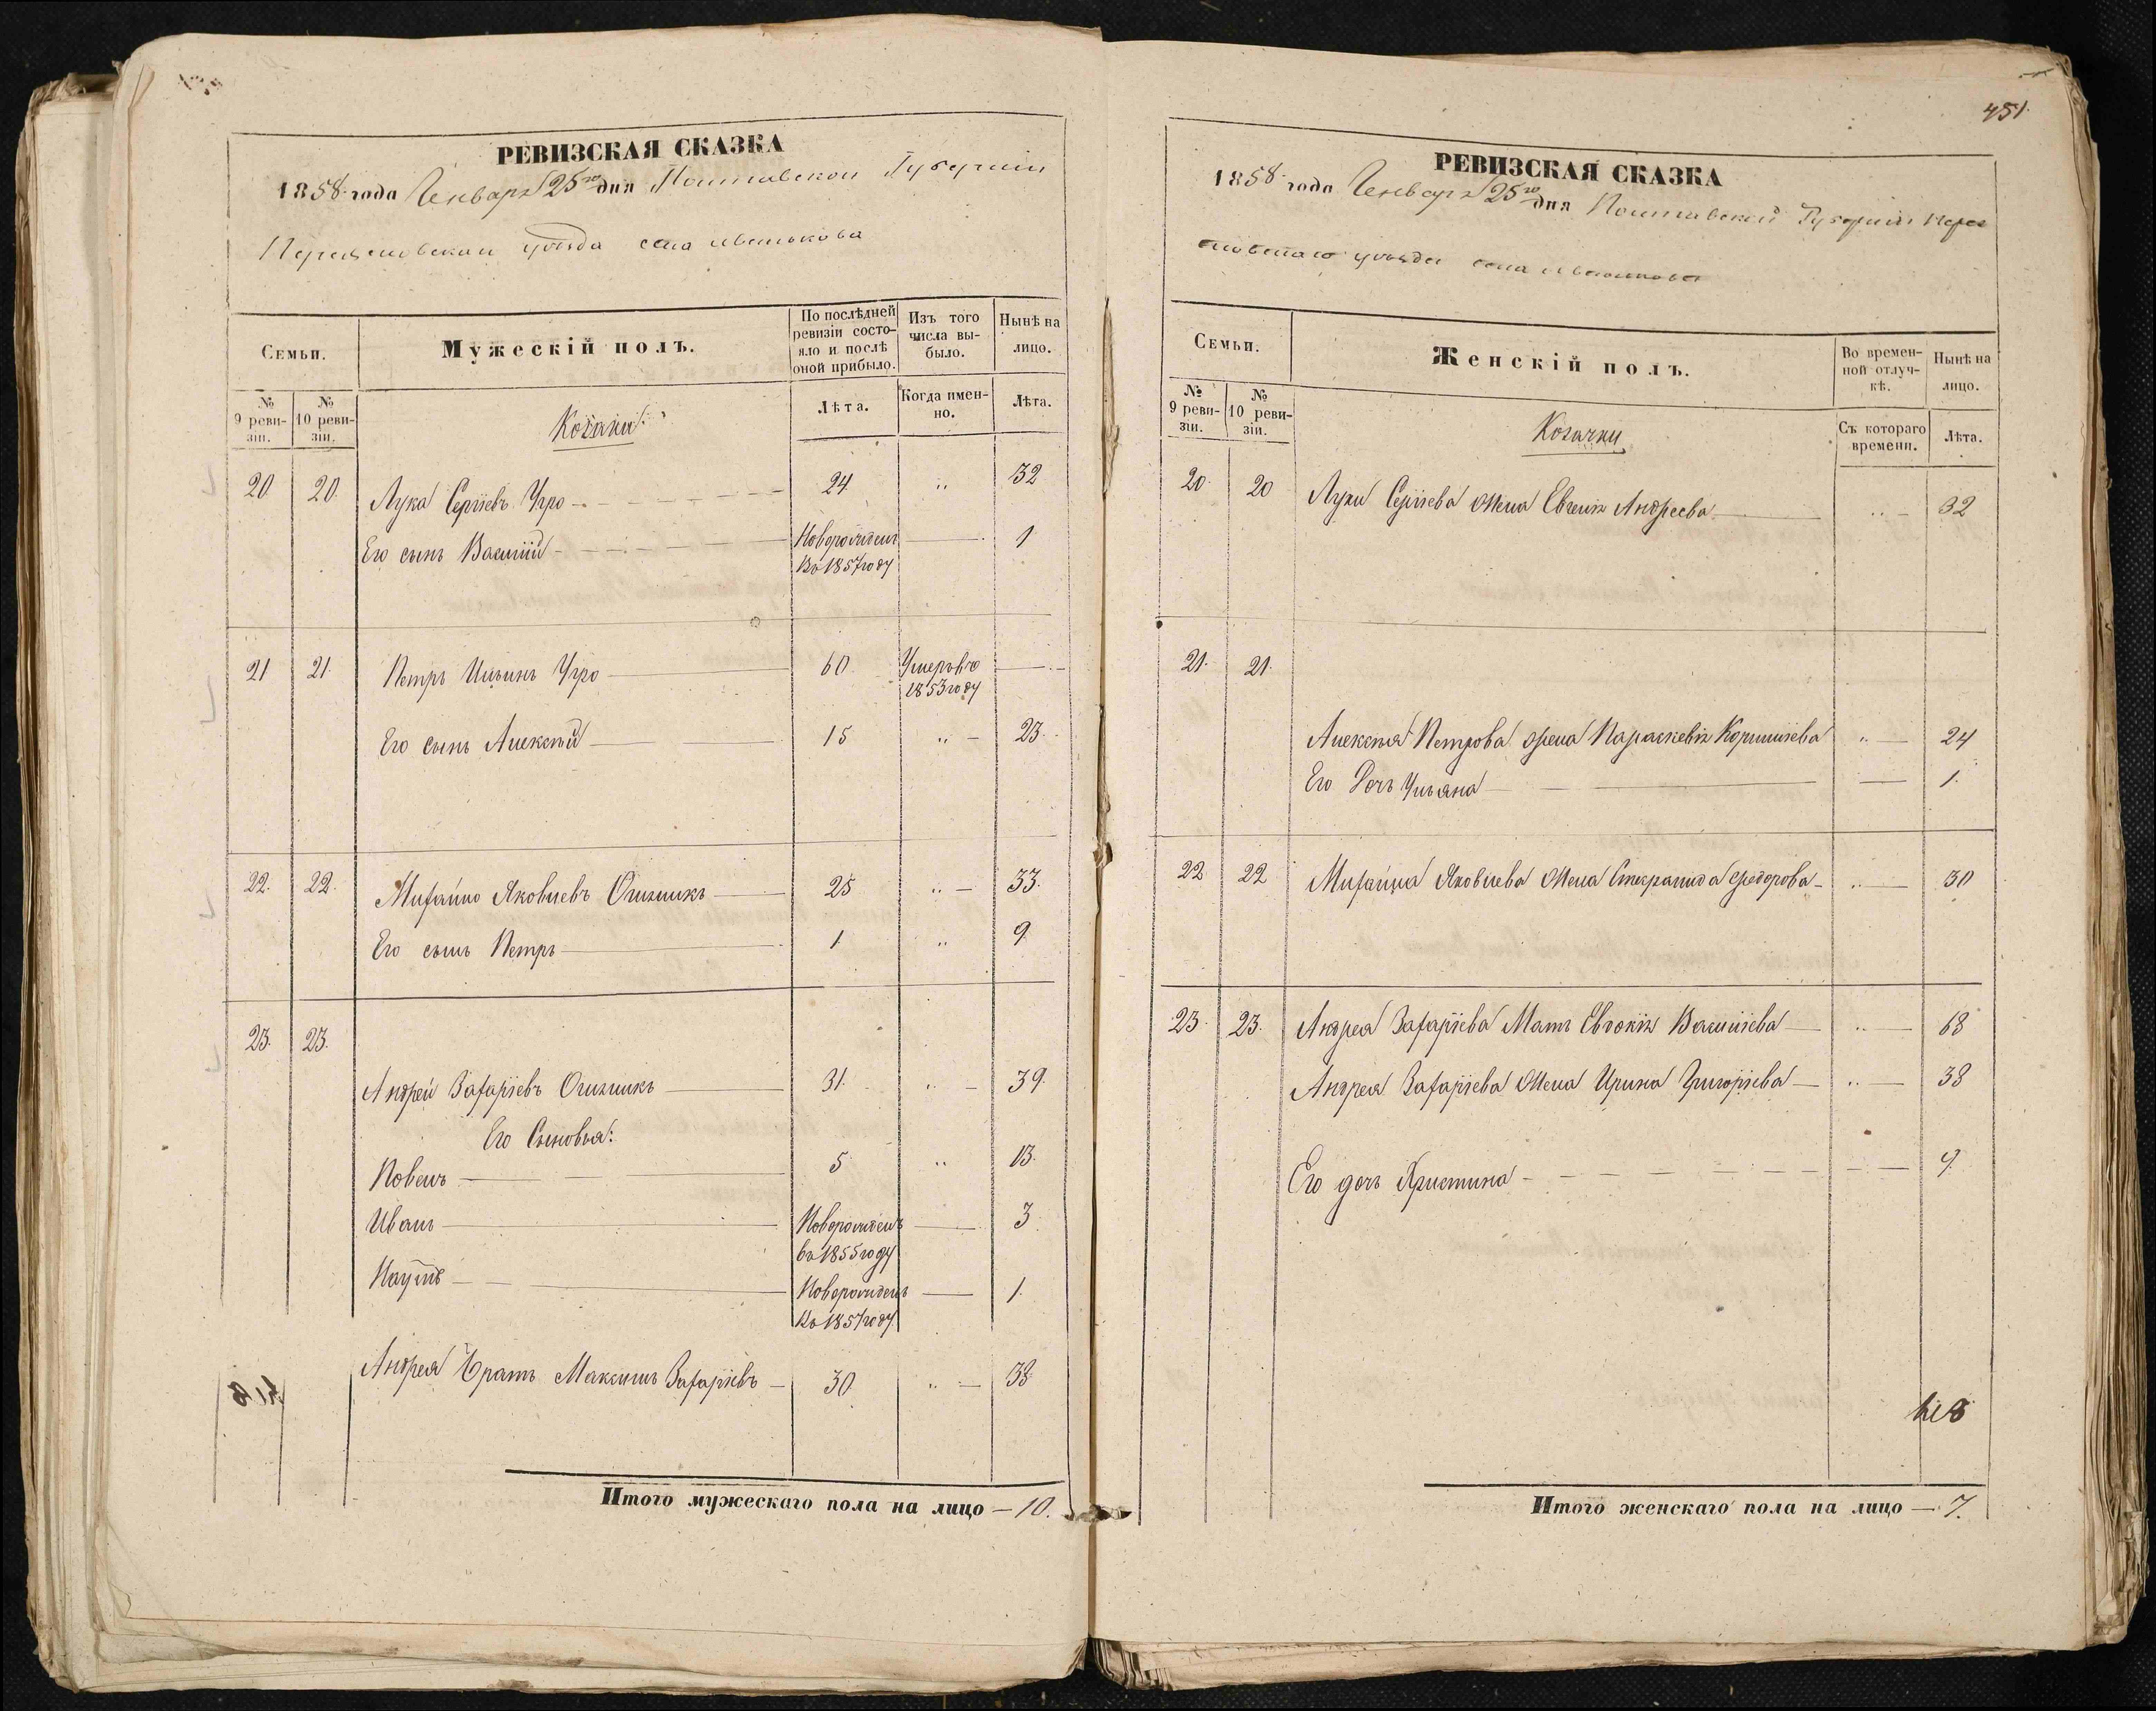 РЕВИЗСКАЯ СКАЗКА
1858 года Генваря 25го дня Полтавской Губерніи
уѣзда села
Семьи.
Мужескій полъ.
По послѣдней ревизіи состояло и послѣ оной прибыло.
Изъ того числа выбыло.
Нынѣ на лицо.
№ 9 ревизіи.
№ 10 ревизіи.
Козаки:
Лѣта.
Когда именно.
Лѣта.
20 20. Лука Сергіевъ Угро 24 „ 32
Его сынъ Василій Новорожденъ 1
Въ 1857 году
21 21. Петръ Ильинъ Угро 60. Умеръ въ
1853 году
Его сынъ Алексѣй 15 „ 23.
22. 22. Михайло Яковлевъ 25 „ 33.
Его сынъ Петръ 1 „ 9.
23. 23.
Андрей Захаріевъ 31. „ 39.
Его Сыновья:
Иванъ Новорожденъ 3
въ 1855 году
Наумъ Новорожденъ 1.
Въ 1857 году.
Андрея братъ Максимъ Захаріевъ 30. „ 38
Итого мужескаго пола на лицо — 10.
451.
РЕВИЗСКАЯ СКАЗКА
1858 года Генваря 25го дня Полтавской Губерніи
уѣзда села
Семьи.
Женскій полъ.
Во временной отлучкѣ.
Нынѣ на лицо.
№ 9 ревизіи.
№ 10 ревизіи.
Козачки
Съ котораго времени.
Лѣта.
20. 20 Луки Сергіева жена Евгенія Андреева „ 32
21. 21.
Алексѣя Петрова жена Параскевія Корниліева „ 24
Его Дочь Ульяна 1.
22 22 Михайла Яковлева жена Степанида Федорова „ 30
23. 23. Андрея Захаріева Мать Евдокія Василіева „ 68
Андрея Захаріева жена Ирина Григоріева „ 38
Его дочь Христина 9.
Итого женскаго пола на лицо — 7.